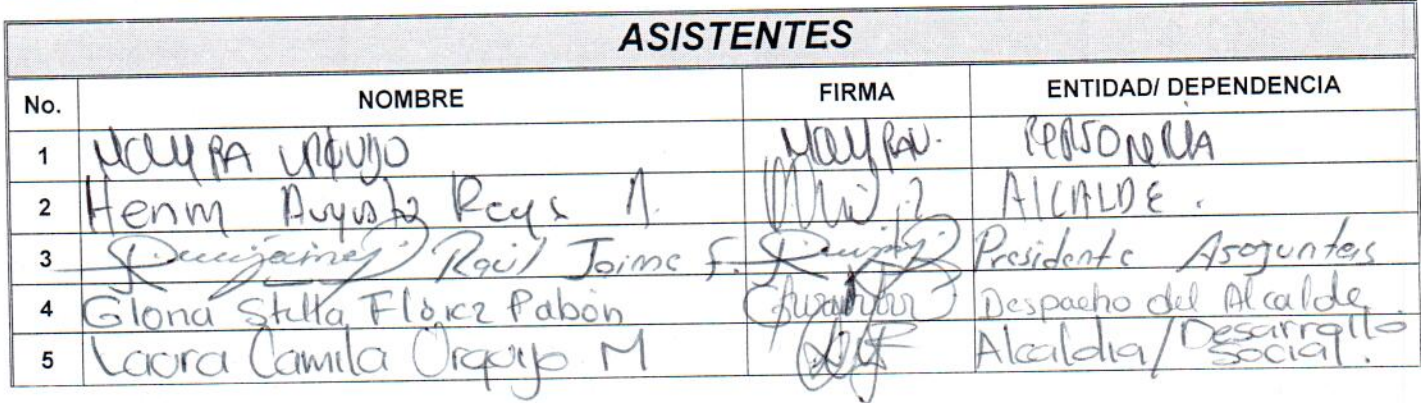 ASISTENTES
No. NOMBRE FIRMA ENTIDAD/ DEPENDENCIA
1 Mayra Urquijo Mayra U. PERSONERIA
2 Augusto ALCALDE.
3 Raúl Jaime F. Presidente Asojuntas
4 Gloria Stella Flórez Pabón Despacho del Alcalde
5 Laura Camila Urquijo M Alcaldia/Desarrollo Social.